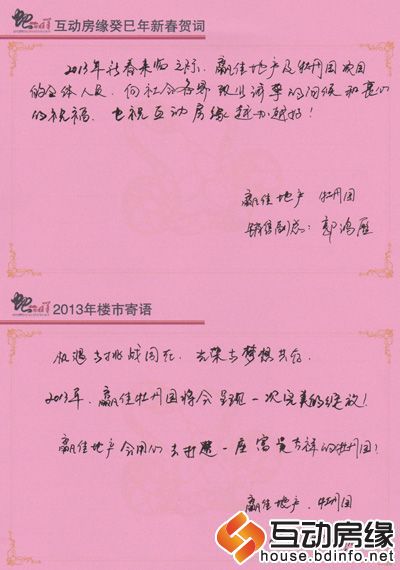 互动房缘癸巳年新春贺词
2013年新春来临之际，赢佳地产及牡丹园项目
的全体人员，向社会各界致以诚挚的问候和衷心
的祝福，也祝互动房缘越办越好！
赢佳地产 牡丹园
销售副总：郭鸿雁
2013年楼市寄语
机遇与挑战同在，共荣与梦想共存，
2013年，赢佳牡丹园将会呈现一次完美的绽放！
赢佳地产会用心去打造一座富贵吉祥的牡丹园！
赢佳地产、牡丹园
互动房缘
house.bdinfo.net